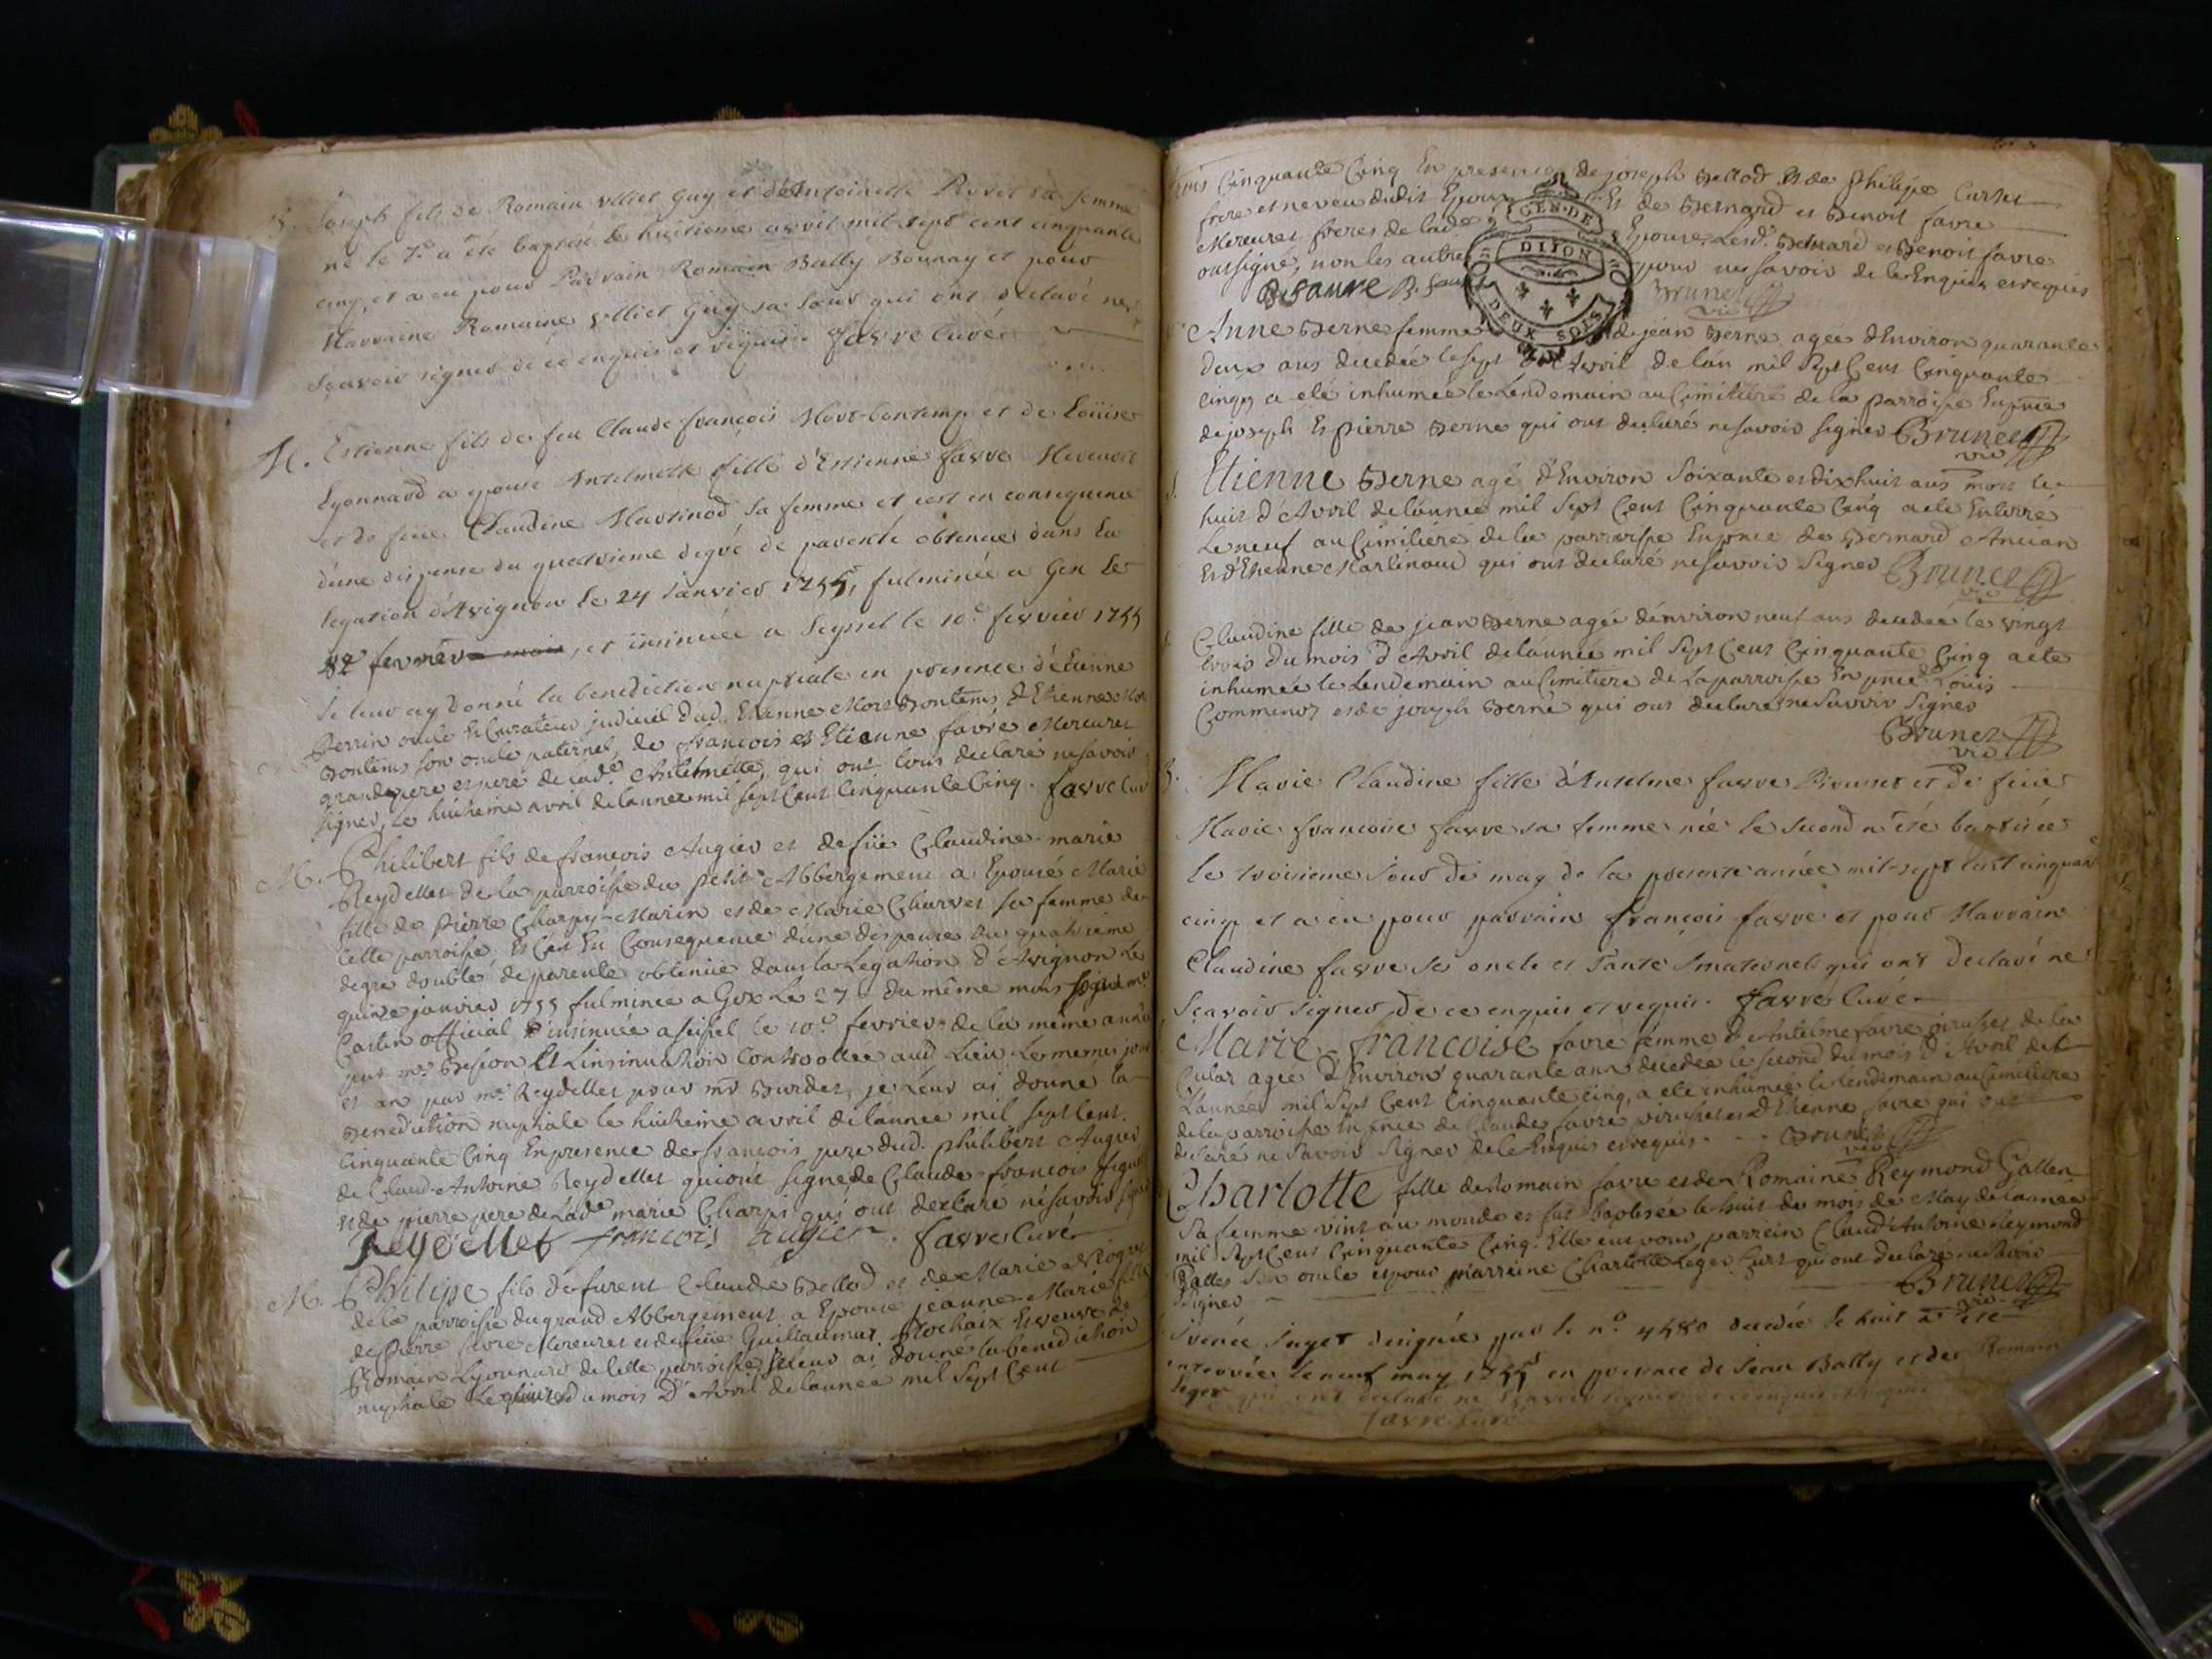 B. Joseph fils de Romain Vlliet Guy et d'Antoinette Rivet sa femme
né le 7.e a été baptisé le huitieme avril mil sept cent cinquante
cinq, et a eu pour Parrain Romain Bally Bounay et pour
Marraine Romaine Vlliet Guy sa soeur qui ont declaré ne
sçavoir signer de ce enquis et requis. favre curé
M. Estienne fils de feu Claude françois Mort-bontemps et de Loüise
Lyonnard a epousé Antelmette fille d'Estienne favre Mercuret
et de feüe Claudine Martinod sa femme et cest en consequence
d'une dispense du quatrieme degré de parenté obtenue dans la
legation d'Avignon le 24 janvier 1755, fulminée a Gex le
fevrier, et insinuée a Seyssel le 10.e fevrier 1755
je leur ay donné la benediction nuptiale en presence d'Etienne
Perrin oncle et Curateur judiciel dud. Etienne Mort Bontems, d'Etienne Mort
Bontems son oncle paternel, de françois et Etienne favre Mercuret
grandpere et pere de lade Antelmette, qui ont tous declaré ne savoir
signer, le huitieme avril de lannee mil sept cent cinquante cinq. favre curé
M. Philibert fils de françois Augier et de füe Claudine-marie
Reydellet de la parroisse du petit Abbergement a Epousé Marie
fille de Pierre Charpy-Marin et de Marie Charvet sa femme de
cette parroisse, et c'est En Consequence d'une dispense du quatrieme
degre double de parenté obtenüe dans la Legation d'Avignon le
quinze janvier 1755 fulminée a Gex le 27 du même mois signé mr
Castin official insinuée a seissel le 10.e fevrier de la même année
par mr. Besson Et Linsinuation Controollée aud Lieu les memes jour
et an par mr. Reydellet pour mr Burdet, je Leur ai donné la
Benediction nuptiale le huitieme avril de lannee mil sept cent
cinquante cinq En presence de françois pere dud. philibert Augier
de Claud-Antoine Reydellet qui ont signé de Claude-françois
et de pierre pere de lade marie Charpi qui ont declaré ne savoir signer
Reydellet françois Augier. favre Curé
M. Philipe fils de furent Claude Bellod et de Marie
de la parroisse du grand Abbergement a Epousé jeanne-Marie fille
de Pierre favre Mercuret et de feüe Guillaumaz Rochaix Et veuve de
Romain Lyonnard de cette parroisse, je leur ai donné la benediction
nuptiale le du mois D'Avril de lannee mil sept Cent
Cinquante Cinq En presence de joseph Bellod et de Philipe Curtet
frere et neveu dudit Epoux Et de Bernard et Benoit favre
Mercuret freres de lade Epouse, Lesd. Bernard et Benoit favre
ont signé, non les autres pour ne savoir de ce Enquis et requis
B favre B. favre Brunet
vic
GEN. DE
DIJON
DEUX SOLS
Anne Berne femme de jean Berne agée d'Environ quarante
deux ans decedée le sept Avril de l'an mil sept Cent Cinquante
cinq, a eté inhumée le Lendemain au Cimitiere de la Parroisse En pnce
de joseph Et Pierre Berne qui ont declaré ne savoir signer Brunet
vic
Etienne Berne agé d'Environ soixante et dix huit ans mort le
huit d'Avril de lannée mil sept Cent Cinquante Cinq a eté Enterré
Le neuf au Cimitiere de la parroisse En pnce de Bernard Ancian
Et d'Etienne Martinaud qui ont declaré ne savoir signer Brunet
vic
Claudine fille de jean Berne agée d'environ neuf ans decedée le vingt
trois du mois d'Avril de lannée mil sept Cent Cinquante Cinq a eté
inhumée le Lendemain au Cimitiere de La parroisse En pnce Loüis
Commenoz et de joseph Berne qui ont declaré ne savoir signer
Brunet
vic
B. Marie Claudine fille d'Antelme favre et de feüe
Marie françoise favre sa femme née le second a été baptisée
le troisieme jour de may de la presente année mil-sept cent cinquante
cinq et a eu pour parrain françois favre et pour Marraine
Claudine favre ses oncle et Tante maternels qui ont declaré ne
sçavoir signer, de ce enquis et requis. favre curé
Marie-francoise favre femme d'Antelme favre de la
Cular agée d'Environ quarante ans decedée le second du mois d'Avril de
L'année mil sept Cent Cinquante Cinq, a eté inhumée le lendemain au Cimitiere
de la parroisse En pnce de Claude favre et d'Etienne favre qui ont
declaré ne savoir signer de ce Enquis et requis. Brunet
vic
Charlotte fille de Romain favre et de Romaine Reymond Gallen
sa femme vint au monde et fut baptisée le huit du mois de May de lannée
mil sept Cent Cinquante Cinq. Elle eut pour parrein Claud'Antoine Reymond
Gallen son oncle et pour marreine Charlotte Leger qui ont declaré ne savoir
signer Brunet
vic
designée par le n.o 4580 decedé le huit a été
enterrée le neuf may 1755 en presence de jean Bally et de Romain
leger qui ont declaré ne sçavoir signer de ce enquis et requis
favre curé